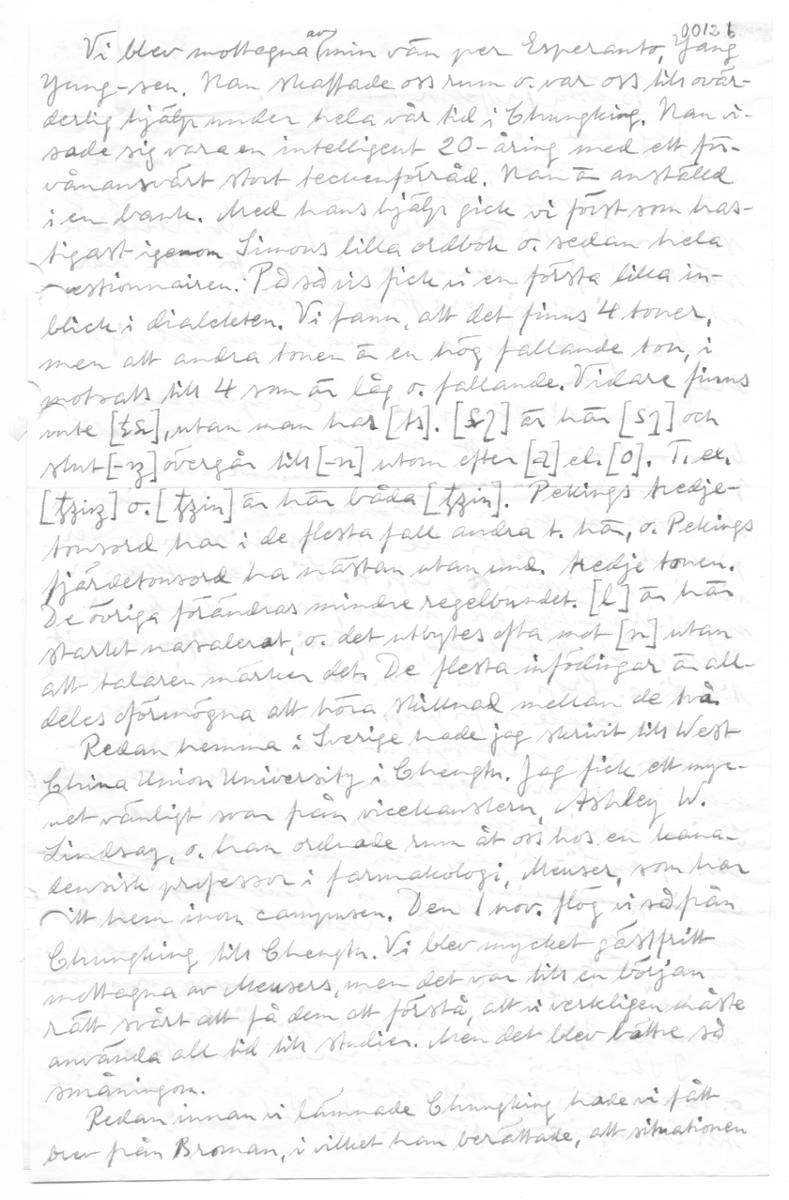 00126
Vi blev mottagna av min vän per Esperanto, Yang
Yung-sen. Han skaffade oss rum o. var oss till ovär-
derlig hjälp under hela vår tid i Chungking. Han vi-
sade sig vara en intelligent 20-åring med ett för-
vånansvärt stort teckenförråd. Han är anställd
i en bank. Med hans hjälp gick vi först som has-
tigast igenom Simons lilla ordbok o. sedan hela
estionnairen. På så vis fick vi en första lilla in-
blick i dialekten. Vi fann, att det finns 4 toner,
men att andra tonen är en hög fallande ton, i
motsats till 4 som är låg o. fallande. Vidare finns
inte [ʈʂ], utan man har [ts]. [ʂʅ] är här [sɿ] och
slut [-ŋ] övergår till [-n] utom efter [a] el. [o]. T. ex.
[tɕiŋ] o. [tɕin] är här båda [tɕin]. Pekings tredje-
tonsord har i de flesta fall andra t. här, o. Pekings
fjärdetonsord ha nästan utan und. tredje tonen.
De övriga förändras mindre regelbundet. [l] är här
starkt nasalerat, o. det utbytes ofta mot [n] utan
att talaren märker det. De flesta infödingar är all-
deles oförmögna att höra skillnad mellan de två.
Redan hemma i Sverige hade jag skrivit till West
China Union University i Chengtu. Jag fick ett myc-
ket vänligt svar från vicekanslern, Ashley W.
Lindsay, o. han ordnade rum åt oss hos en kana-
densisk professor i farmakologi, Meuser, som har
sitt hem inom campusen. Den 1 nov. flög vi så från
Chungking till Chengtu. Vi blev mycket gästfritt
mottagna av Meusers, men det var till en början
rätt svårt att få dem att förstå, att vi verkligen måste
använda all tid till studier. Men det blev bättre så
småningom.
Redan innan vi lämnade Chungking hade vi fått
brev från Broman, i vilket han berättade, att situationen